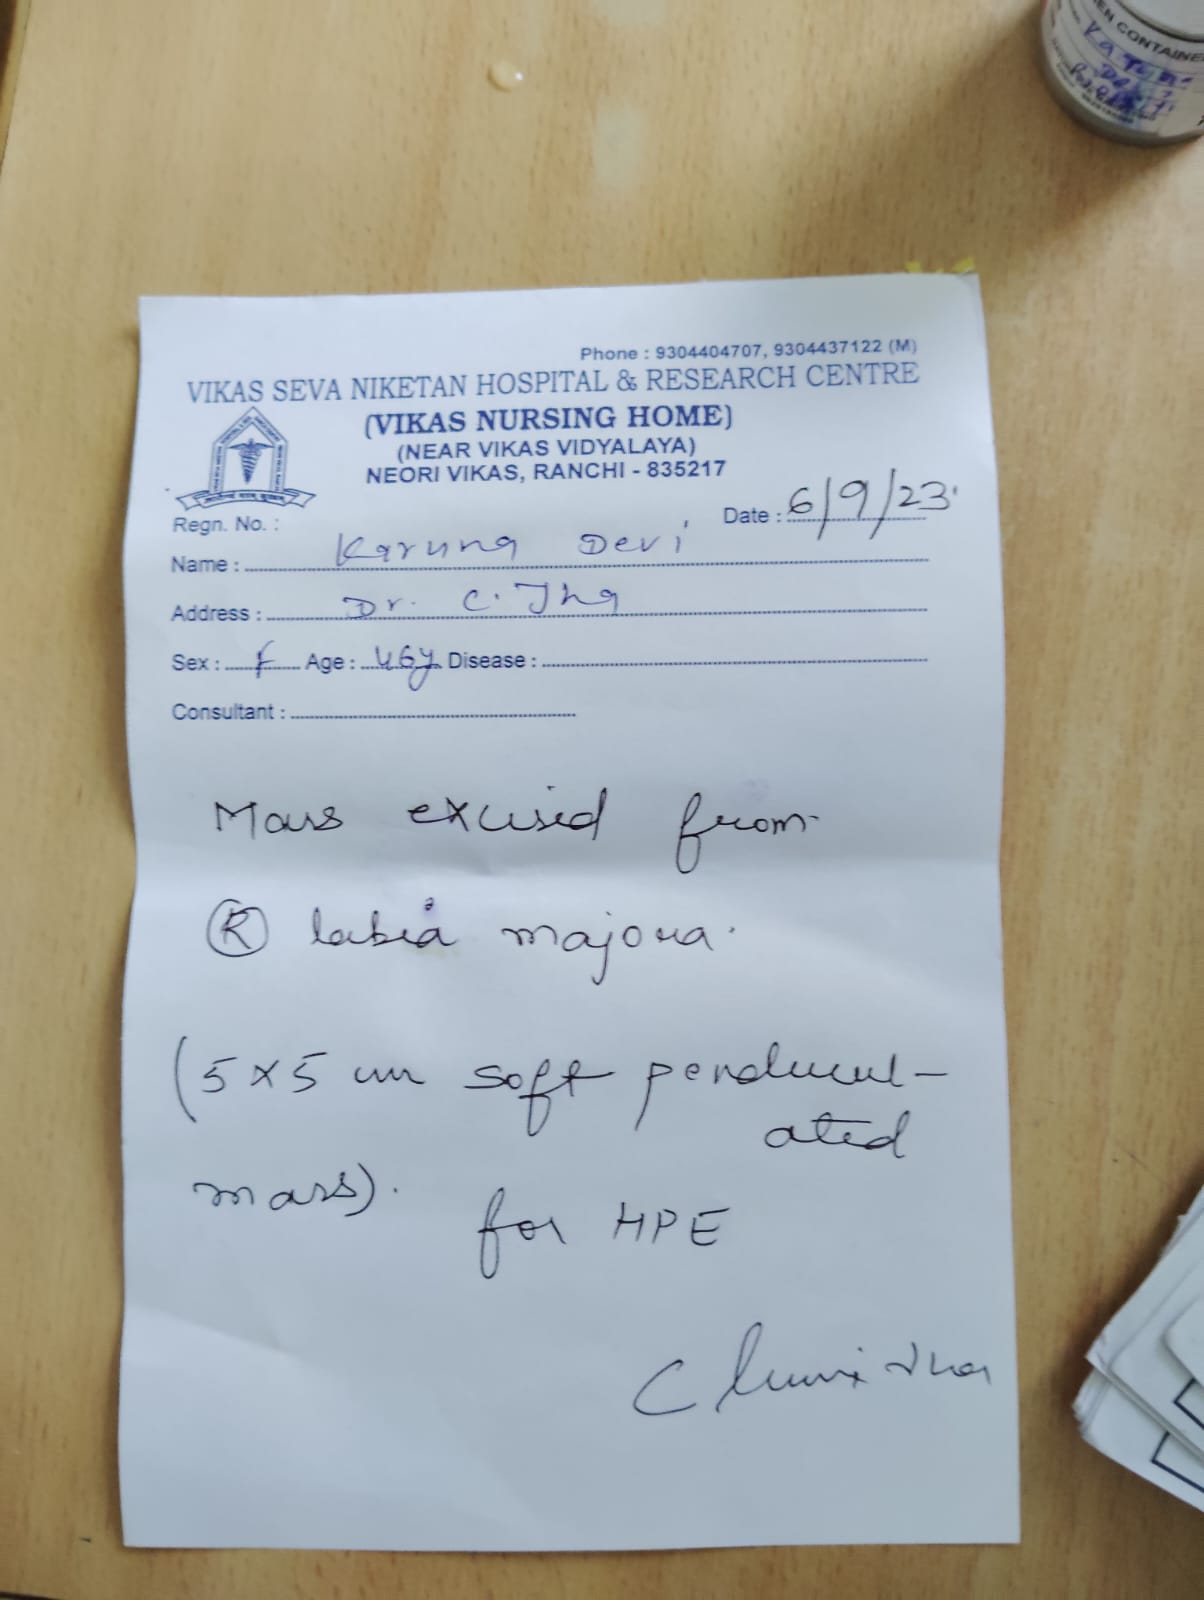 EN CONTAINE
Phone : 9304404707, 9304437122 (M)
VIKAS SEVA NIKETAN HOSPITAL & RESEARCH CENTRE
(VIKAS NURSING HOME)
(NEAR VIKAS VIDYALAYA)
NEORI VIKAS, RANCHI - 835217
Regn. No. :
Date : 6/9/23
Name : Karuna Devi
Address : Dr. C. Jha
Sex : F Age : 46y Disease :
Consultant :
Mass excised from
(R) labia majora.
(5 x 5 cm soft penducul-
ated
mass).
for HPE